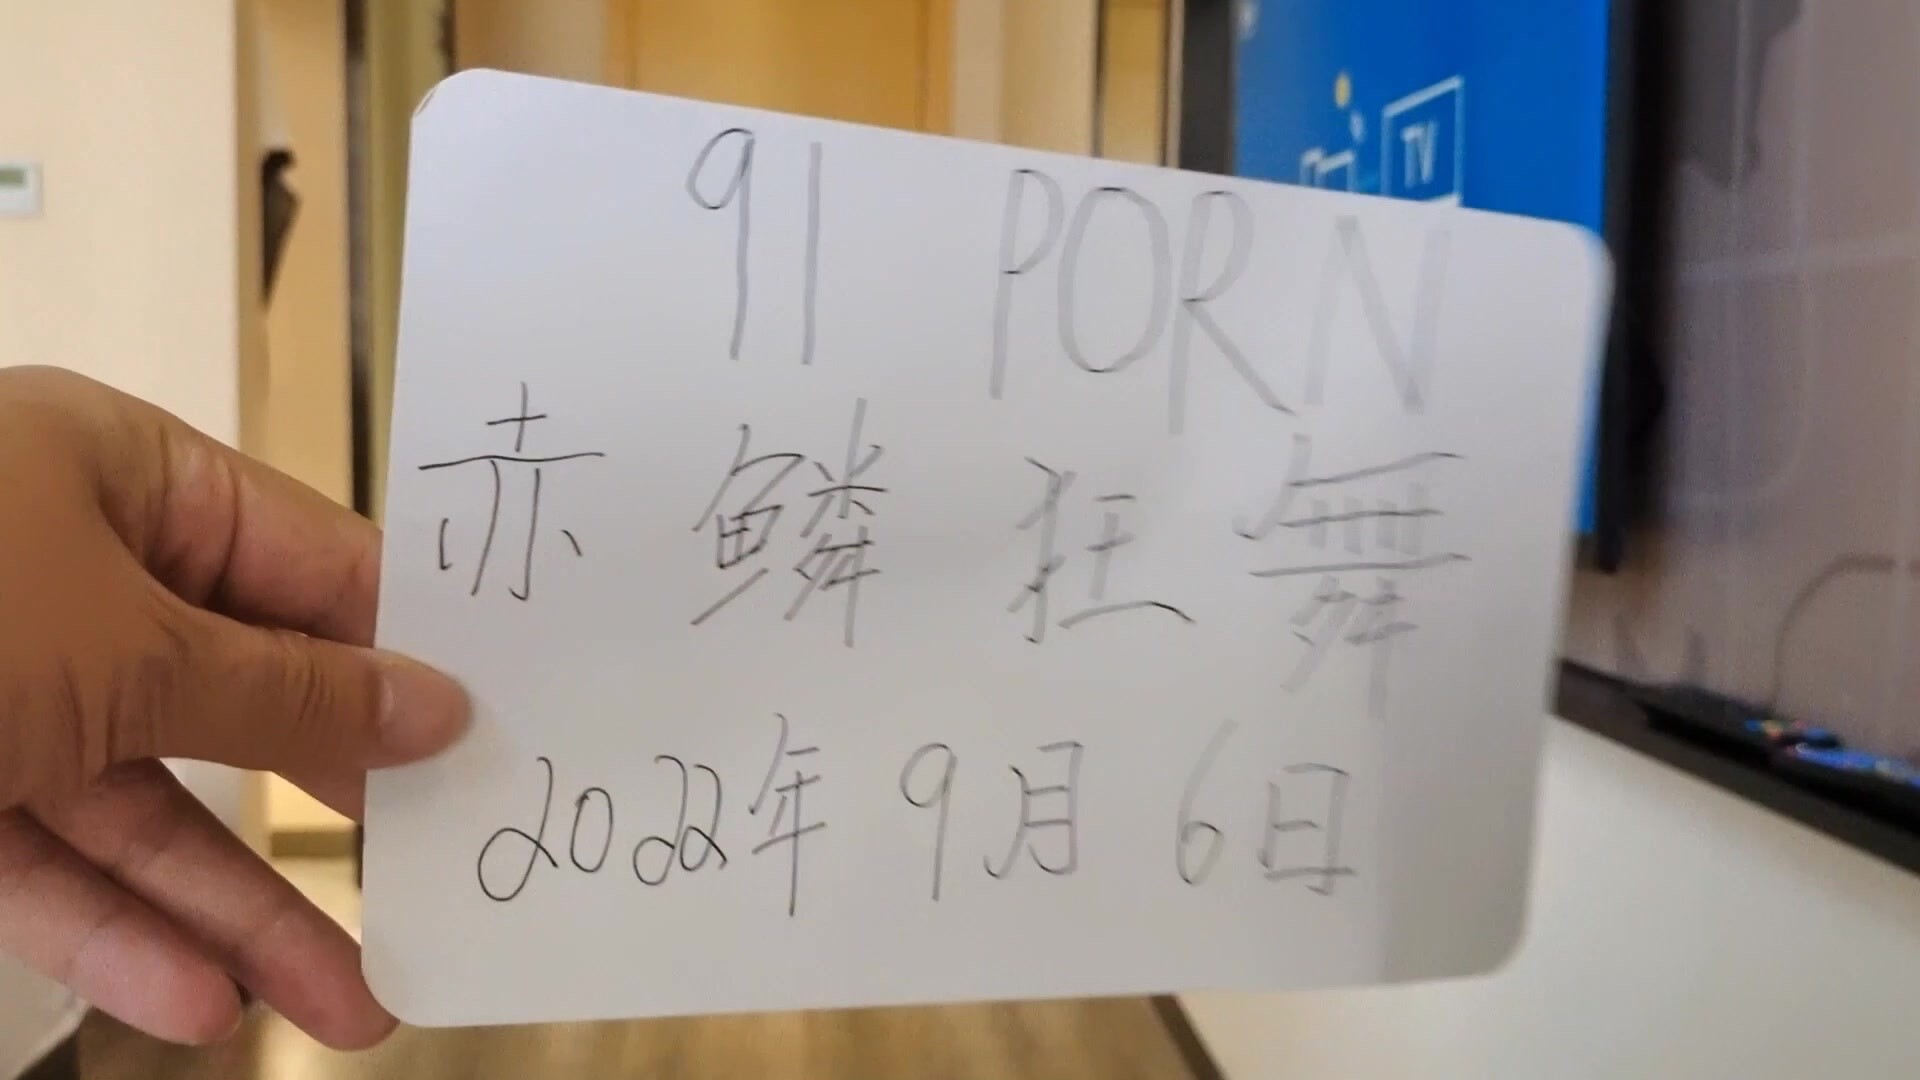 TV
91 PORN
赤鳞狂舞
2022年9月6日